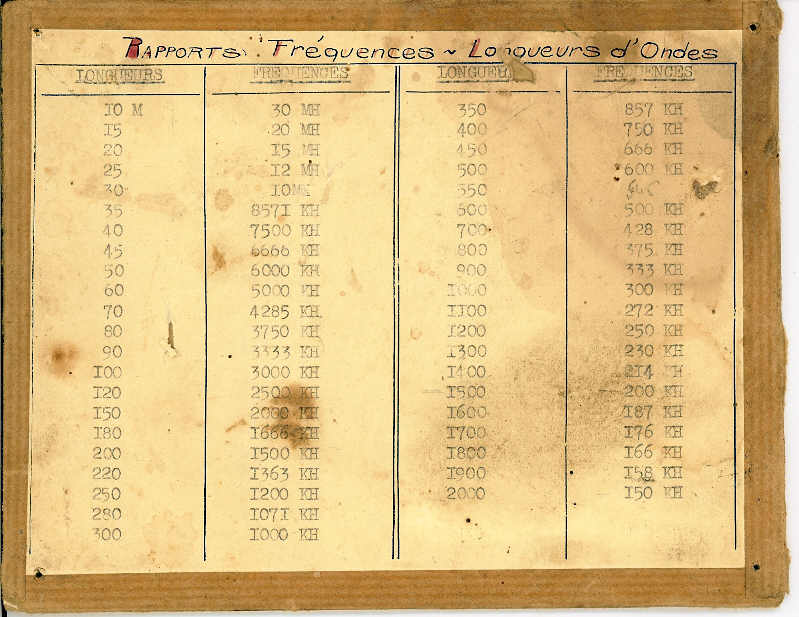 RAPPORTS : Fréquences ~ Longueurs d'Ondes
LONGUEURS FREQUENCES LONGUEU FREQUENCES
IO M 30 MH 350 857 KH
I5 20 MH 400 750 KH
20 I5 MH 450 666 KH
25 I2 MH 500 600 KH
30 IO MH 550
35 857I KH 600 500 KH
40 7500 KH 700 428 KH
45 6666 KH 800 375 KH
50 6000 KH 900 333 KH
60 5000 KH I000 300 KH
70 4285 KH II00 272 KH
80 3750 KH I200 250 KH
90 3333 KH I300 230 KH
I00 3000 KH I400 2I4 KH
I20 2500 KH I500 200 KH
I50 2000 KH I600 I87 KH
I80 I666 KH I700 I76 KH
200 I500 KH I800 I66 KH
220 I363 KH I900 I58 KH
250 I200 KH 2000 I50 KH
280 I07I KH
300 I000 KH